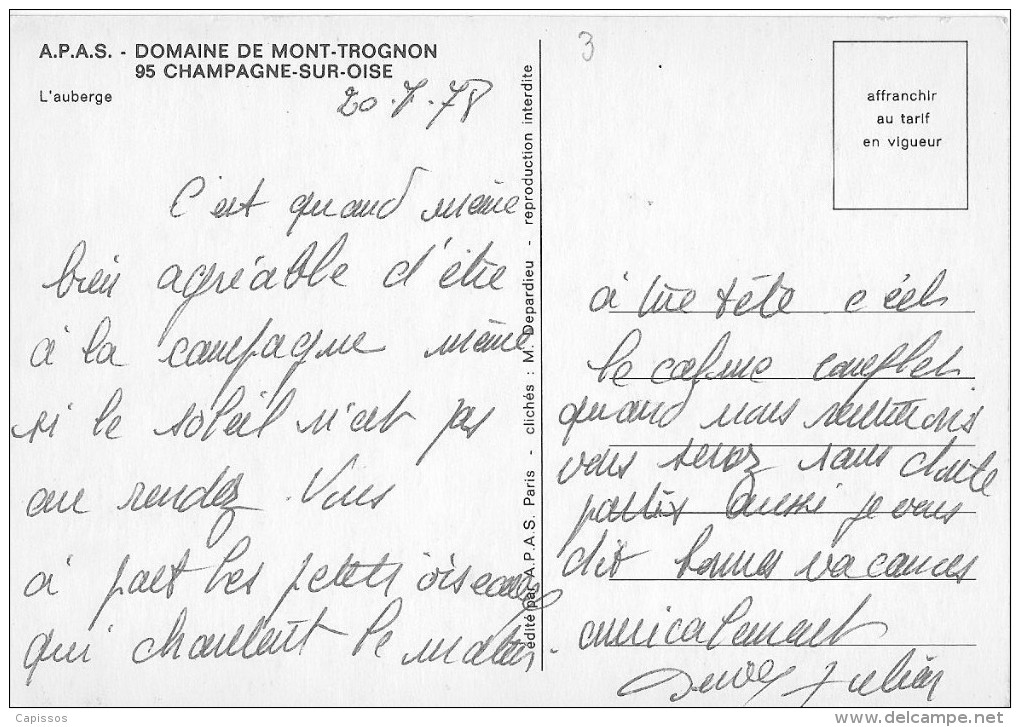 A.P.A.S. - DOMAINE DE MONT-TROGNON
95 CHAMPAGNE-SUR-OISE
L'auberge
20.7.78
C'est quand même
bien agréable d'être
à la campagne même
si le soleil n'est pas
au rendez Vous
à part les petits oiseaux
qui chantent le matin
édité par A.P.A.S. Paris - clichés : M. Depardieu - reproduction interdite
3
affranchir
au tarif
en vigueur
à tue tête c'est
le calme complet
quand nous rentrerons
vous serez sans doute
partis aussi je vous
dit bonnes vacances
amicalement
Julien
Capissos
www.delcampe.net